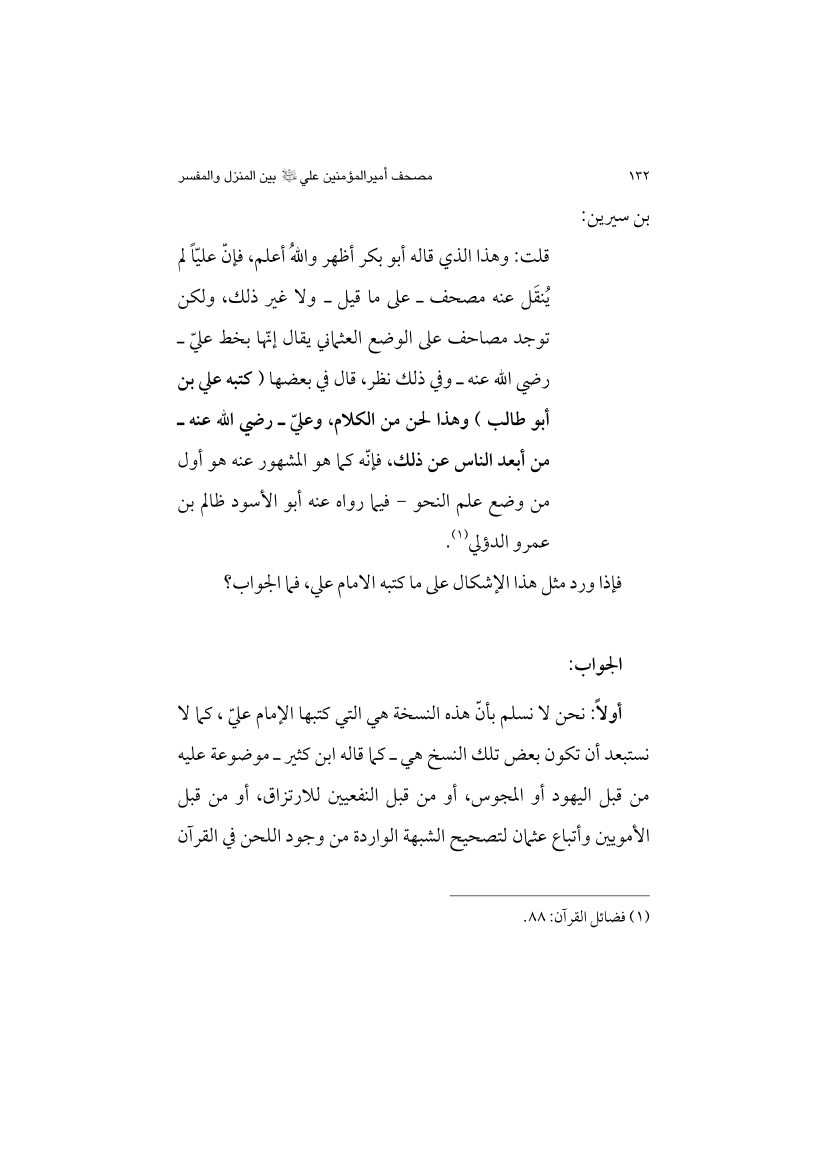 ١٣٢ مصحف أميرالمؤمنين علي ﷷ بين المنزل والمفسر
بن سيرين:
قلت: وهذا الذي قاله أبو بكر أظهر واللهُ أعلم، فإنّ عليّاً لم
يُنقَل عنه مصحف ـ على ما قيل ـ ولا غير ذلك، ولكن
توجد مصاحف على الوضع العثماني يقال إنّها بخط عليّ ـ
رضي الله عنه ـ وفي ذلك نظر، قال في بعضها ( كتبه علي بن
أبو طالب ) وهذا لحن من الكلام، وعليّ ـ رضي الله عنه ـ
من أبعد الناس عن ذلك، فإنّه كما هو المشهور عنه هو أول
من وضع علم النحو – فيما رواه عنه أبو الأسود ظالم بن
عمرو الدؤلي(١).
فإذا ورد مثل هذا الإشكال على ما كتبه الامام علي، فما الجواب؟
الجواب:
أولاً: نحن لا نسلم بأنّ هذه النسخة هي التي كتبها الإمام عليّ ، كما لا
نستبعد أن تكون بعض تلك النسخ هي ـ كما قاله ابن كثير ـ موضوعة عليه
من قبل اليهود أو المجوس، أو من قبل النفعيين للارتزاق، أو من قبل
الأمويين وأتباع عثمان لتصحيح الشبهة الواردة من وجود اللحن في القرآن
(١) فضائل القرآن: ٨٨.